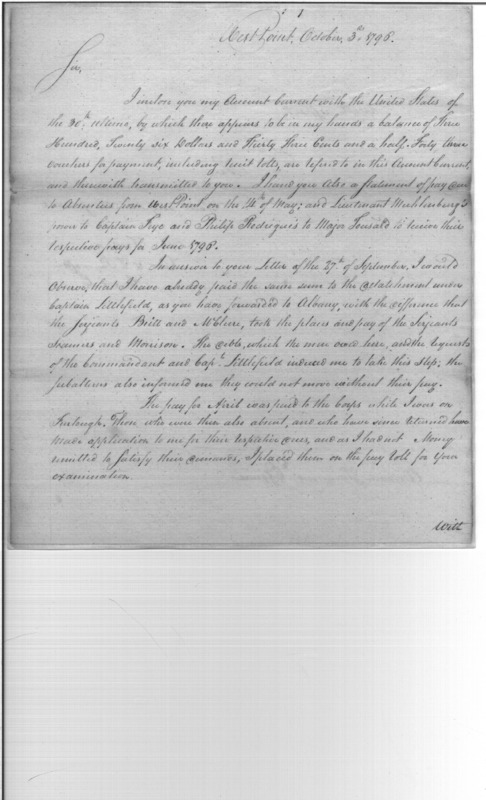 West Point, October, 3d 1796.
Sir,
I inclose you my Account Current with the United States of
the 30th ultimo, by which there appears to be in my hands a balance of Three
Hundred, Twenty six Dollars and Thirty Three Cents and a half. Forty three
vouchers for payment, including Rolls, are referred to in this Account Current,
and therewith transmitted to you. I hand you also a statement of pay due
to Absentees from West Point on the of May; and Lieutenant Muhlenberg's
power to Captain Frye and Philip Rodrigues to Major Tousard to receive their
respective pays for June 1796.
In answer to your Letter of the 27th of September, I would
observe, that I have already paid the same sum to the detatchment under
Captain Littlefield, as you have forwarded to Albany, with the difference that
the Serjeants Britt and McClure, took the places and pay of the Serjeants
and Morrison. The debts, which the men owed here, and the requests
of the Commandant and Capt. Littlefield induced me to take this step; the
subalterns also informed me they could not move without their pay.
The pay for April was paid to the Corps while I was on
Furlough. Those who were then also absent, and who have since returned have
made application to me for their respective dues, and as I had not Money
remitted to satisfy their demands, I placed them on the pay Roll for your
examination.
With